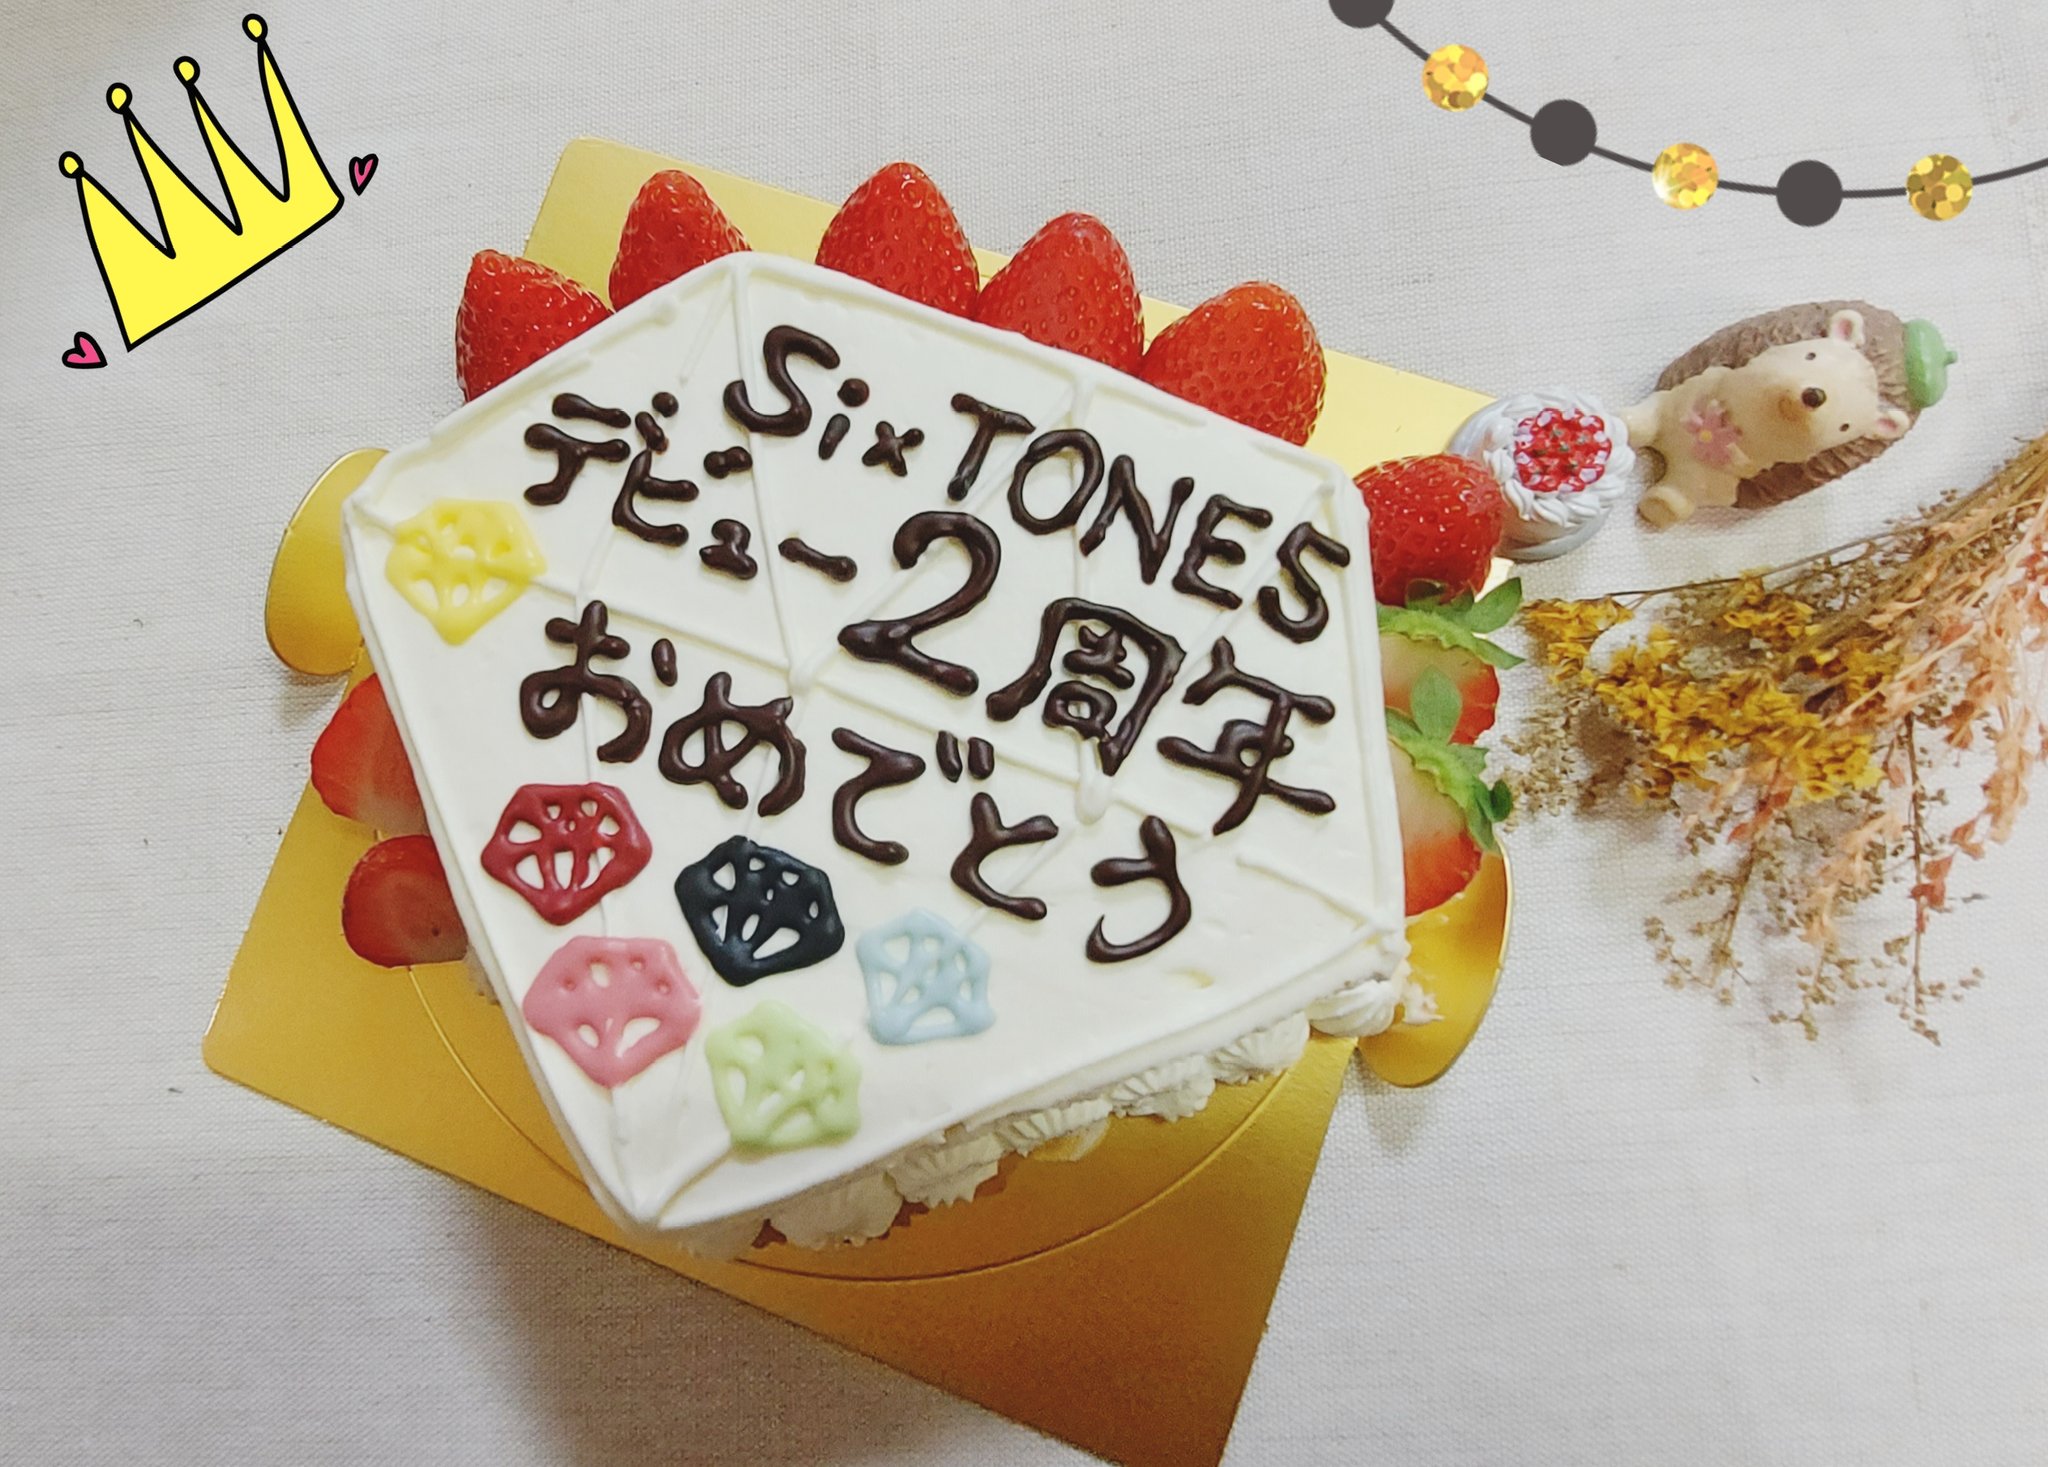 SixTONES
デビュー2周年
おめでとう